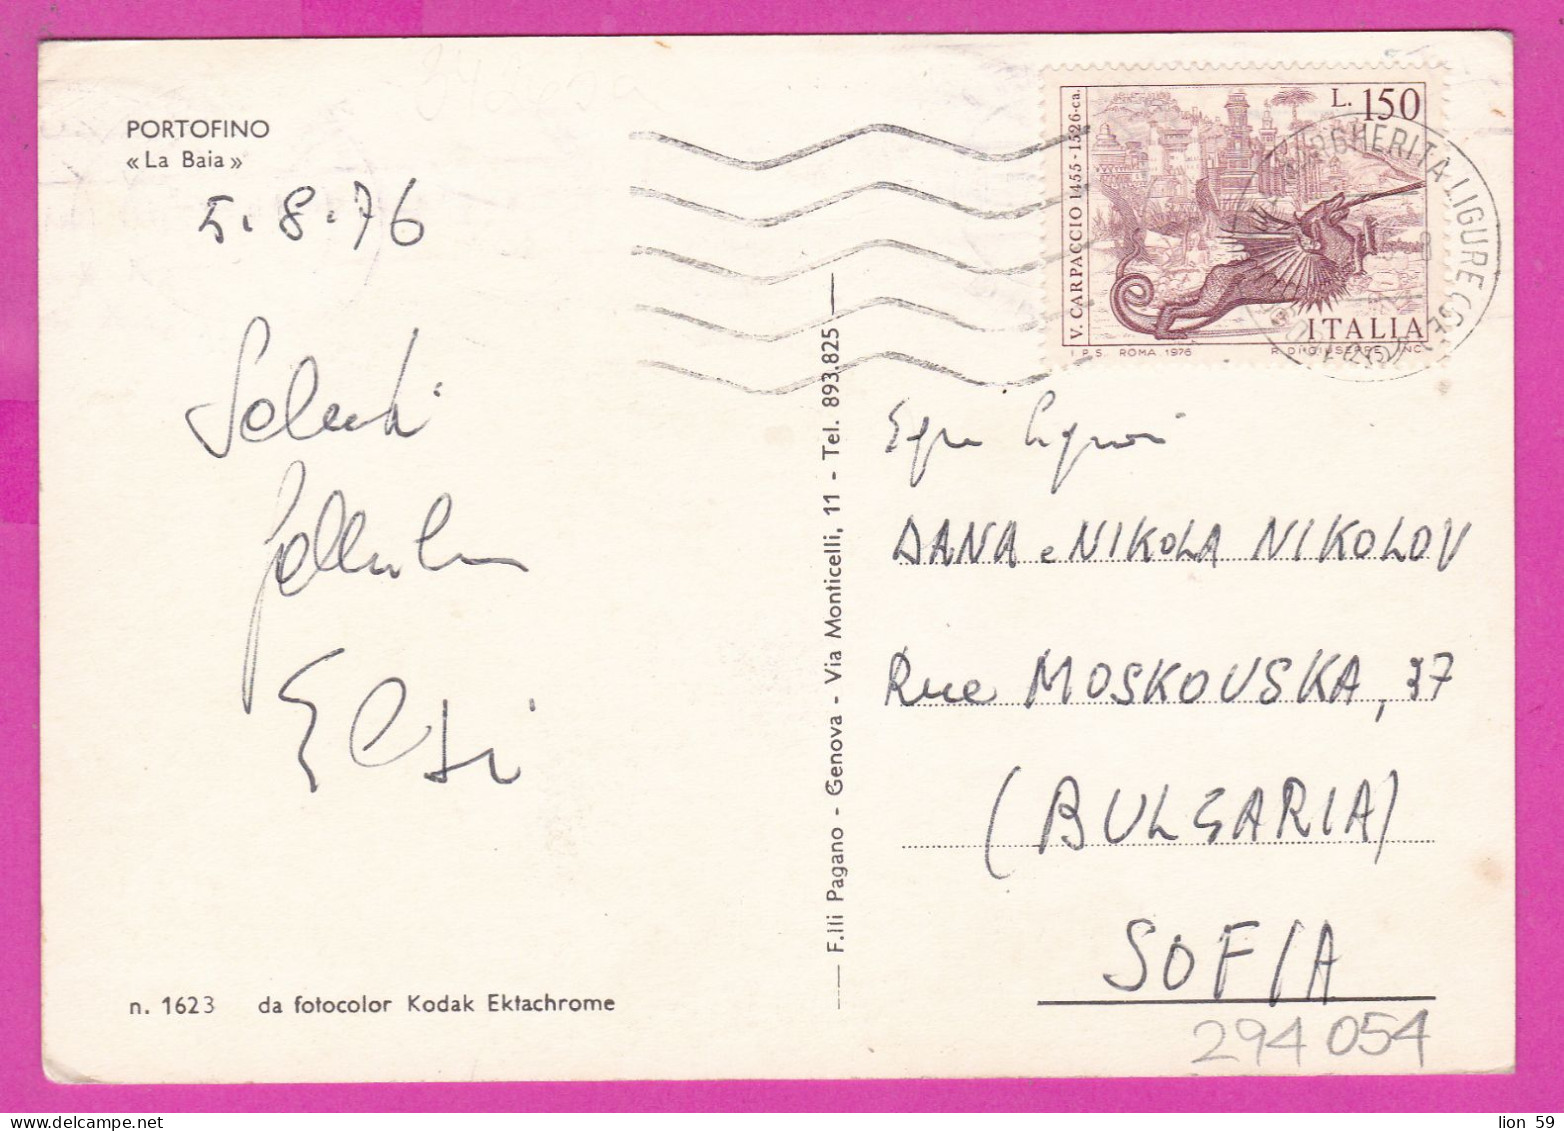 PORTOFINO
«La Baia»
5.8.76
Saluti
Elsi
n. 1623 da fotocolor Kodak Ektachrome
F.lli Pagano - Genova - Via Monticelli, 11 - Tel. 893.825
L. 150
V. CARPACCIO 1455-1526-ca.
ITALIA
I.P.S. ROMA 1976
MARGHERITA LIGURE (GE)
Egri Signori
DANA e NIKOLA NIKOLOV
Rue MOSKOVSKA, 37
(BULGARIA)
SOFIA
294054
lion 59